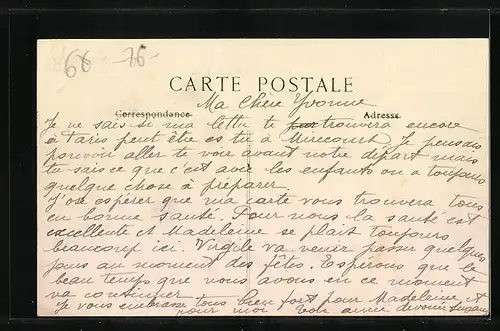 68 -76-
CARTE POSTALE
Ma Chère Yvonne
Correspondance Adresse
Je ne sais si ma lettre te trouvera encore
à Paris peut être es tu à Mirecourt. Je pensais
pouvoir aller te voir avant notre départ mais
tu sais ce que c'est avec les enfants on a toujours
quelque chose à préparer.
J'ose espérer que ma carte vous trouvera tous
en bonne santé. Pour nous la santé est
excellente et Madeleine se plait toujours
beaucoup ici. Virgile va venir passer quelques
jours au moment des fêtes. Espérons que le
beau temps que nous avons en ce moment
va continuer.
Je vous embrasse tous bien fort pour Madeleine et
pour moi Votre amie